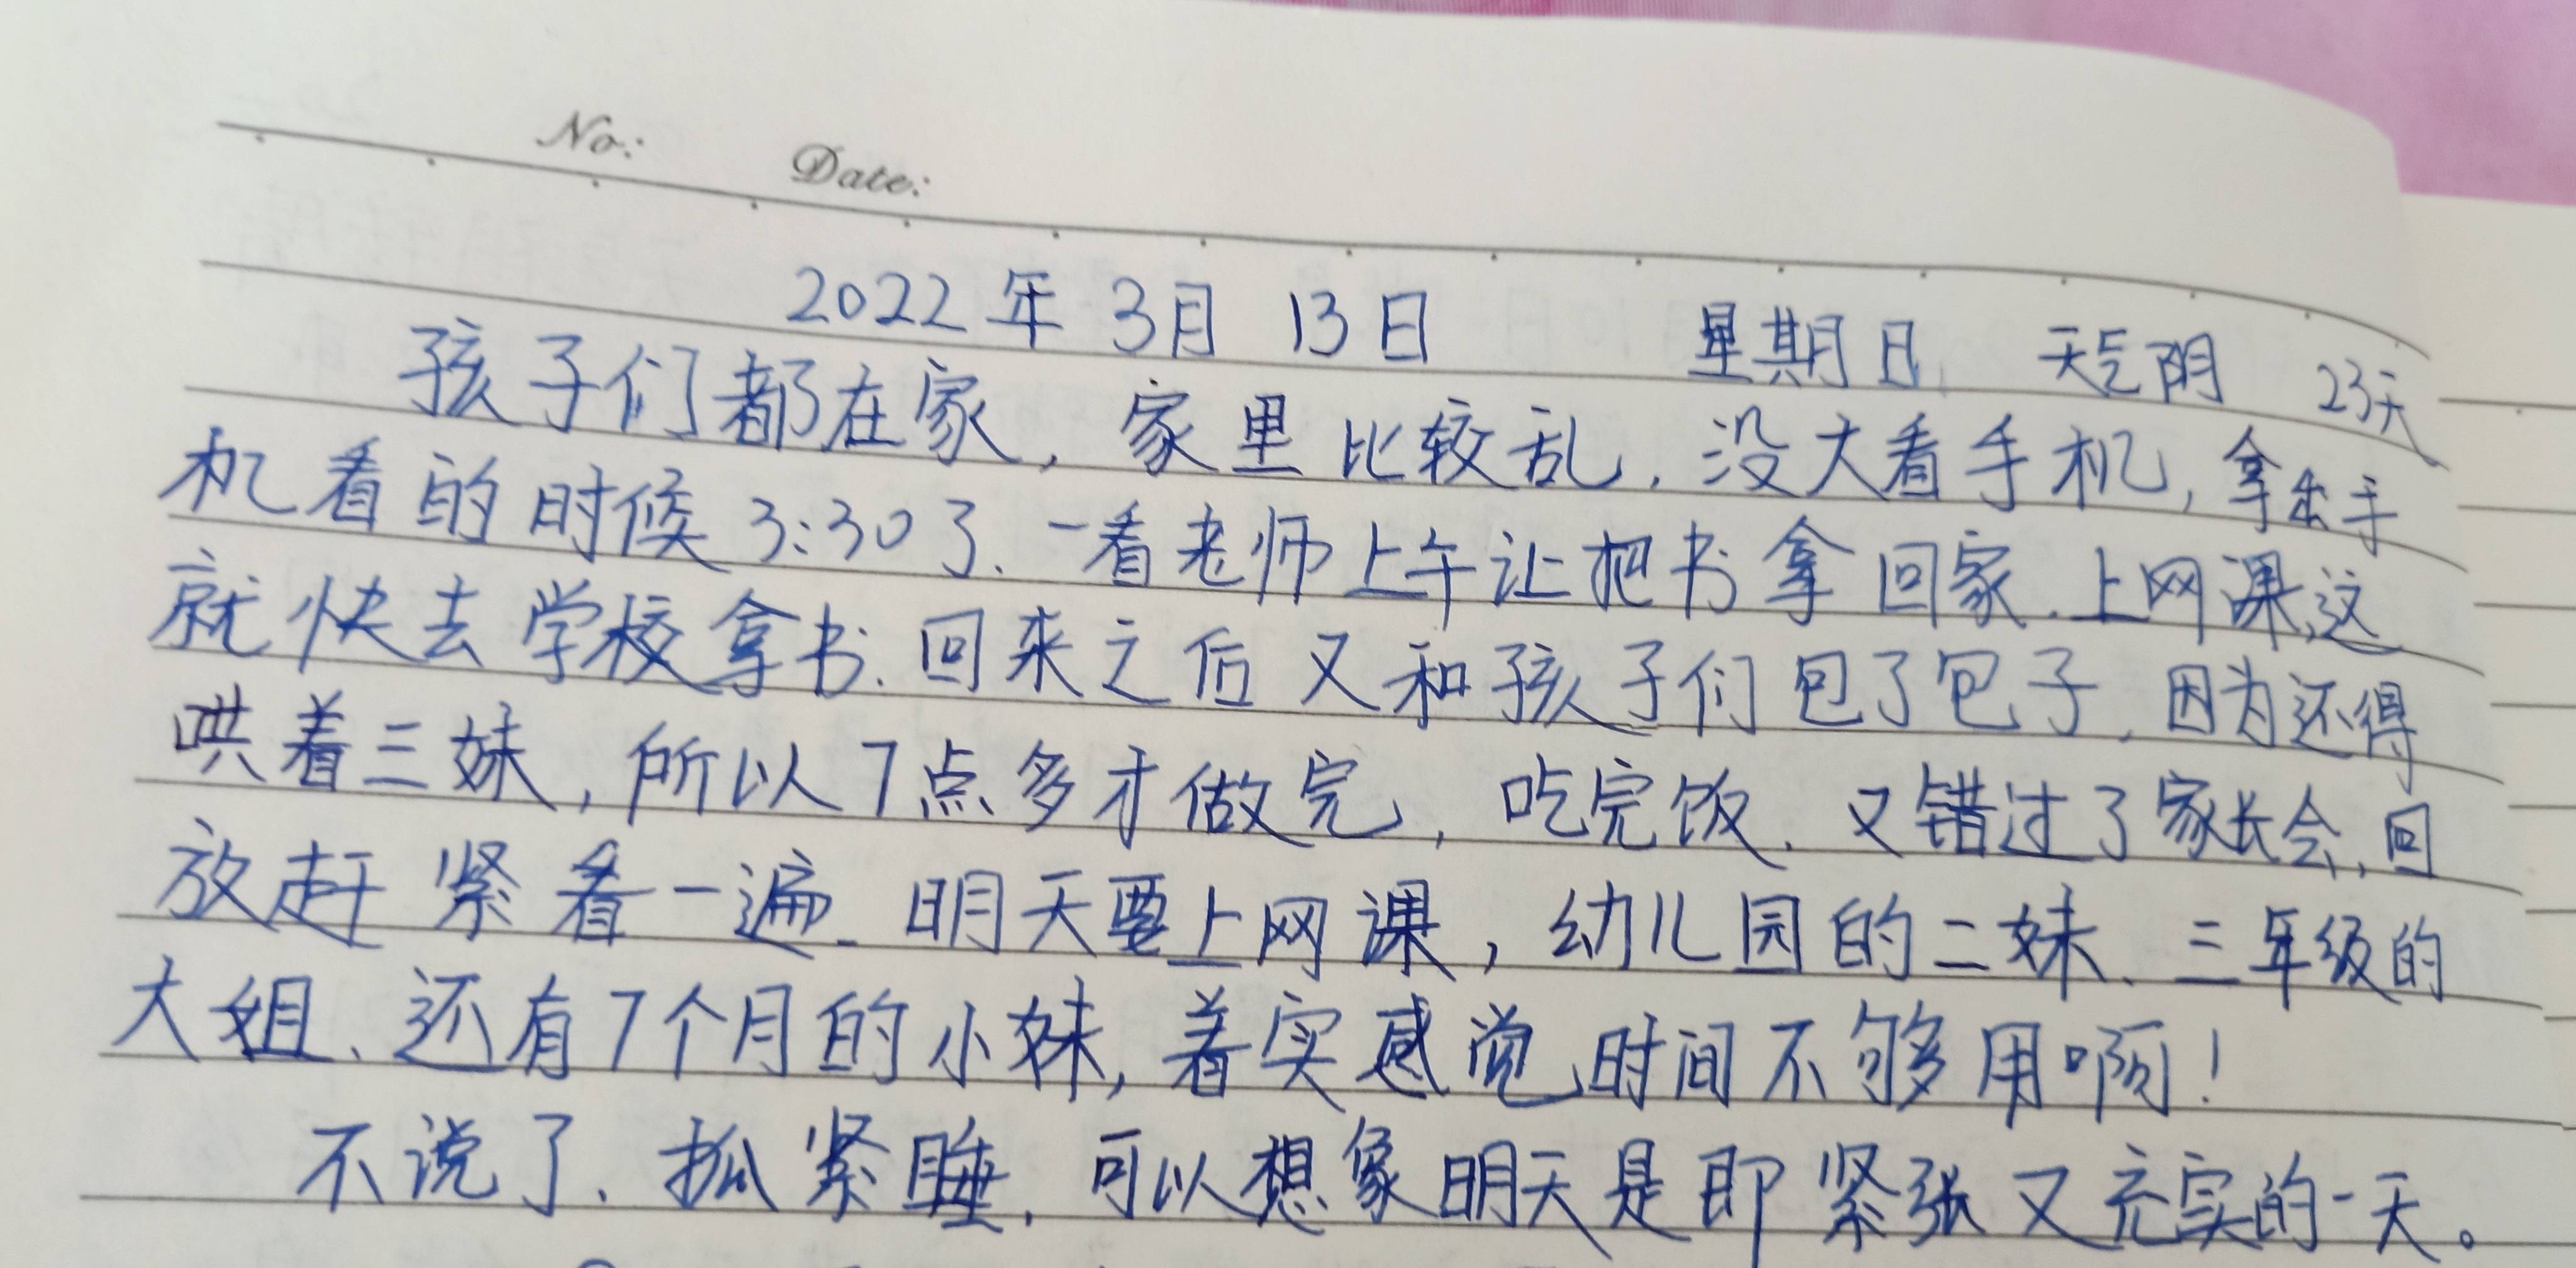 No: Date:
2022年3月13日 星期日 天气阴 23天
孩子们都在家，家里比较乱，没大看手机，拿出手
机看的时候3:30了、一看老师上午让把书拿回家、上网课，这
就快去学校拿书、回来之后又和孩子们包了包子，因为还得
哄着三妹，所以7点多才做完，吃完饭、又错过了家长会，回
放赶紧看一遍、明天要上网课，幼儿园的二妹、三年级的
大姐、还有7个月的小妹，着实感觉时间不够用啊！
不说了、抓紧睡，可以想象明天是即紧张又充实的一天。